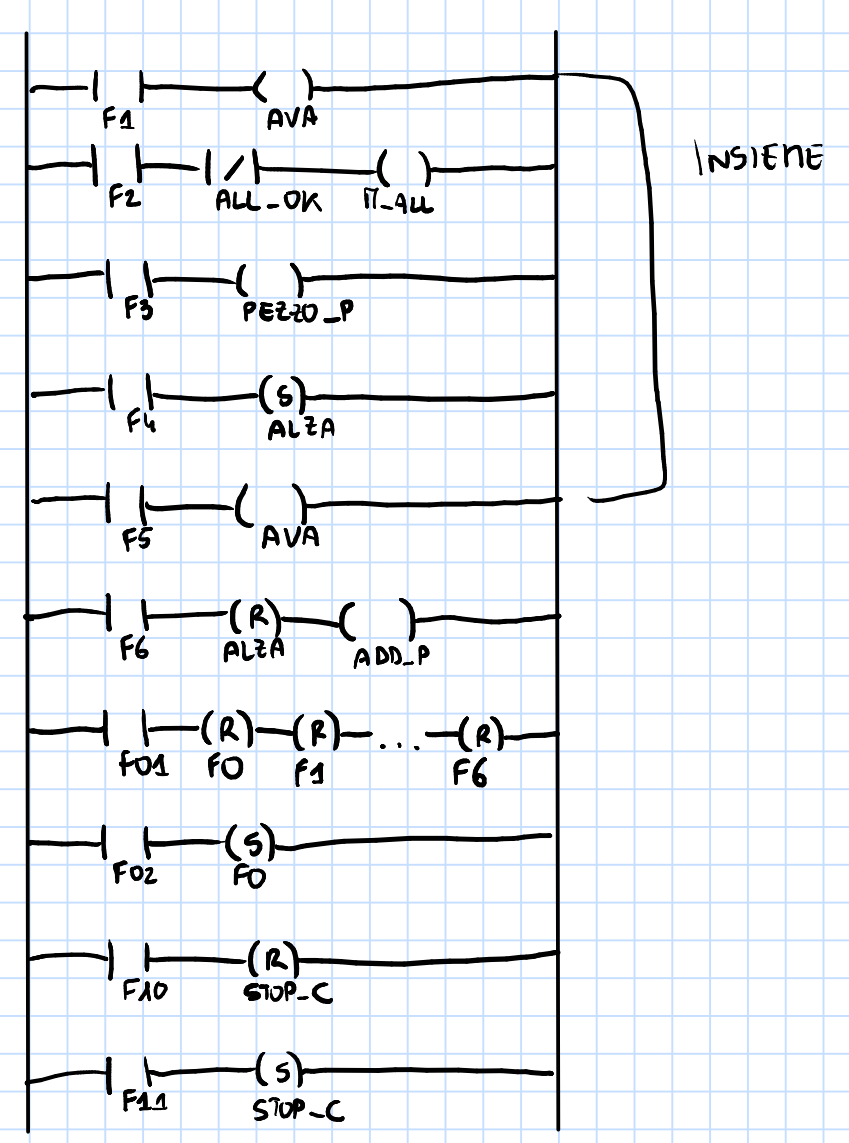 F1 AVA
INSIEME
F2 ALL_OK M_ALL
F3 PEZZO_P
F4 (S) ALZA
F5 AVA
F6 (R) ALZA ADD_P
F01 (R) F0 (R) F1 ... (R) F6
F02 (S) F0
F10 (R) STOP_C
F11 (S) STOP_C